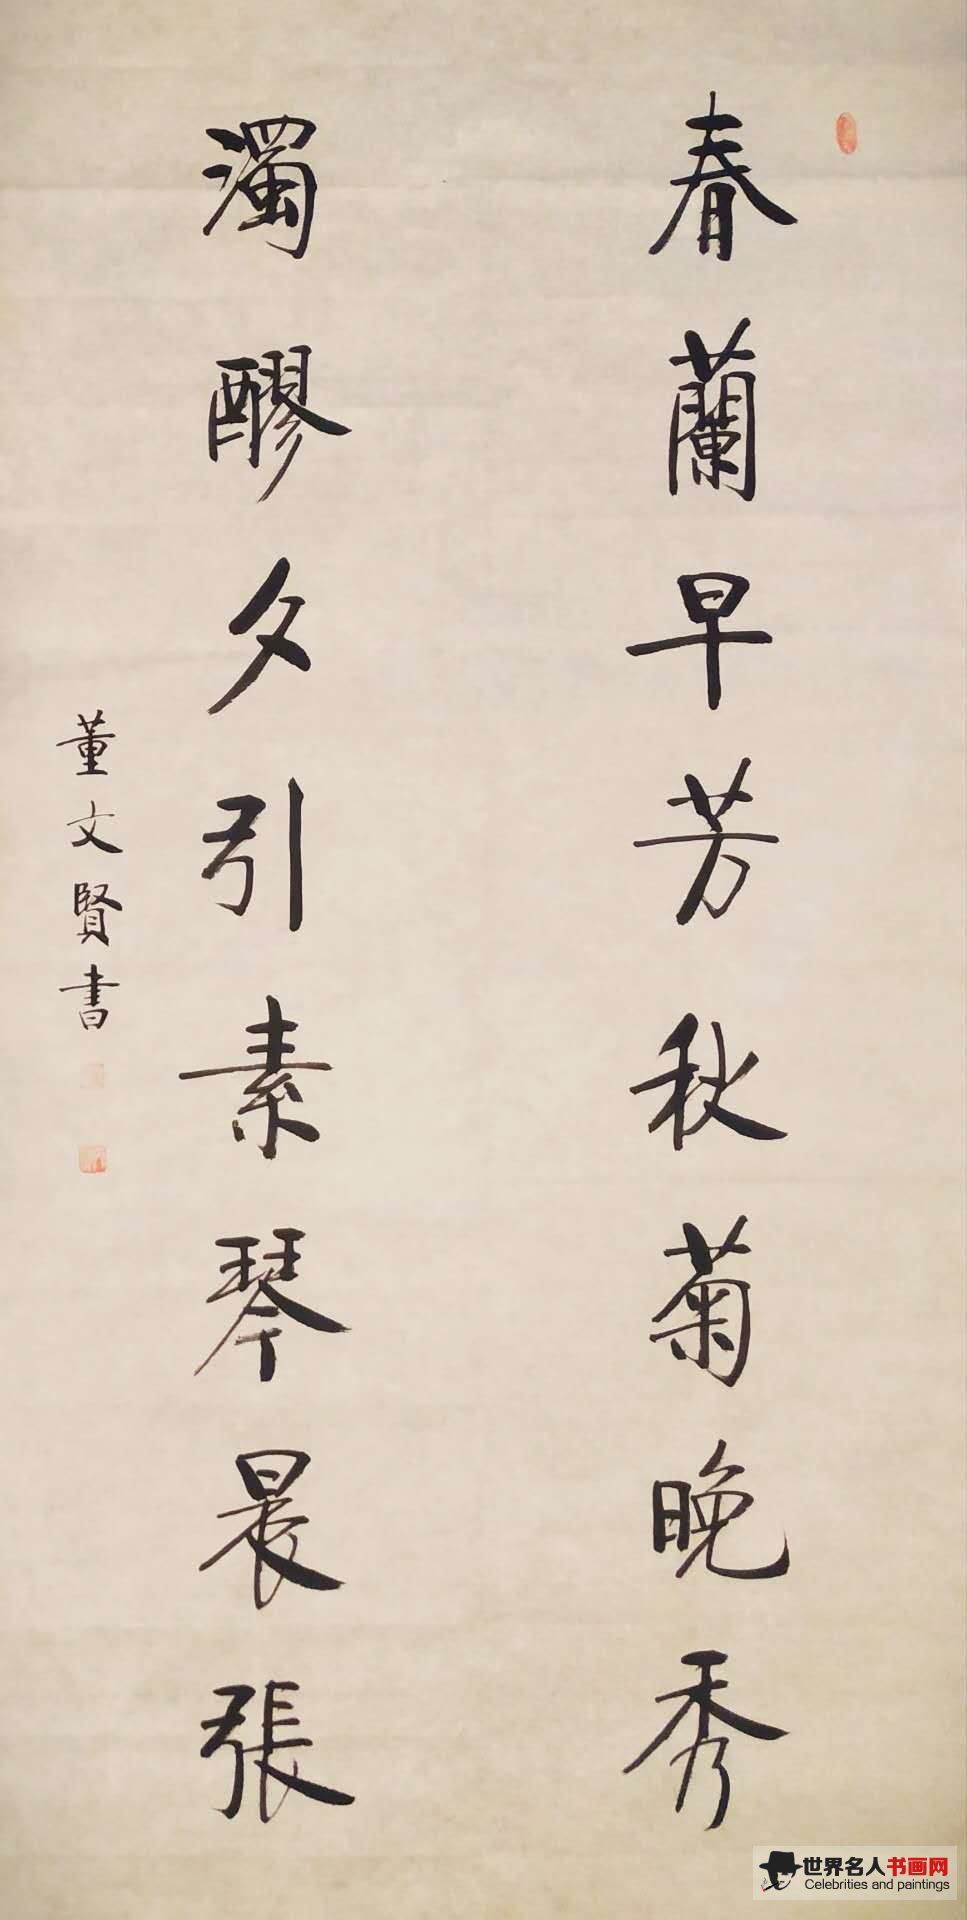 春蘭早芳秋菊晚秀
濁醪夕引素琴晨張
董文賢書
世界名人书画网
Celebrities and paintings